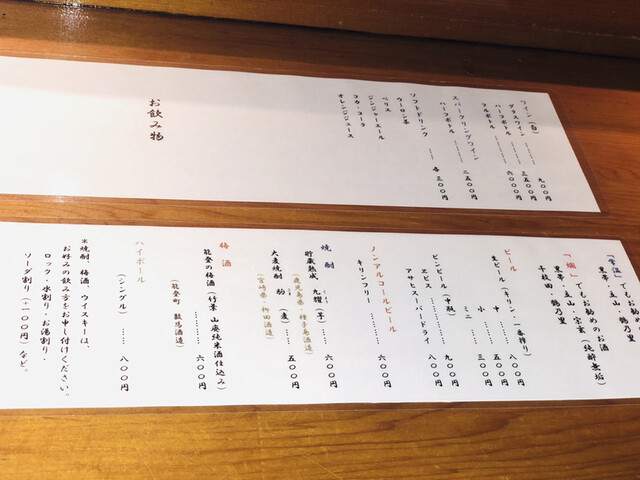 お飲み物
ワイン（白）
グラスワイン ……… 九〇〇円
ハーフボトル ……… 三五〇〇円
フルボトル ……… 六〇〇〇円
スパークリングワイン
ハーフボトル ……… 二五〇〇円
ソフトドリンク …… 各 三〇〇円
ウーロン茶
ジンジャーエール
ペリエ
コカ・コーラ
オレンジジュース
「常温」でもお勧めのお酒
黒帯・立山・鶴乃里
「燗」でもお勧めのお酒
黒帯・立山・宗玄（純酔無垢）
千枚田・鶴乃里
ビール
生ビール（キリン、一番搾り）
中 …… 八〇〇円
小 …… 五〇〇円
ミニ …… 三〇〇円
ビンビール（中瓶）
ヱビス ……… 九〇〇円
アサヒスーパードライ 八〇〇円
ノンアルコールビール
キリンフリー …… 六〇〇円
焼酎
貯蔵熟成 九耀（芋）…… 六〇〇円
（鹿児島県・種子島酒造）
大麦焼酎 駒（麦）…… 五〇〇円
（宮崎県・柳田酒造）
梅酒
能登の梅酒（竹葉 山廃純米酒仕込み）
……… 六〇〇円
（能登町 数馬酒造）
ハイボール
（シングル）…… 八〇〇円
※焼酎、梅酒、ウイスキーは、
お好みの飲み方をお申し付けください。
ロック・水割り・お湯割り・
ソーダ割り（＋一〇〇円）など。